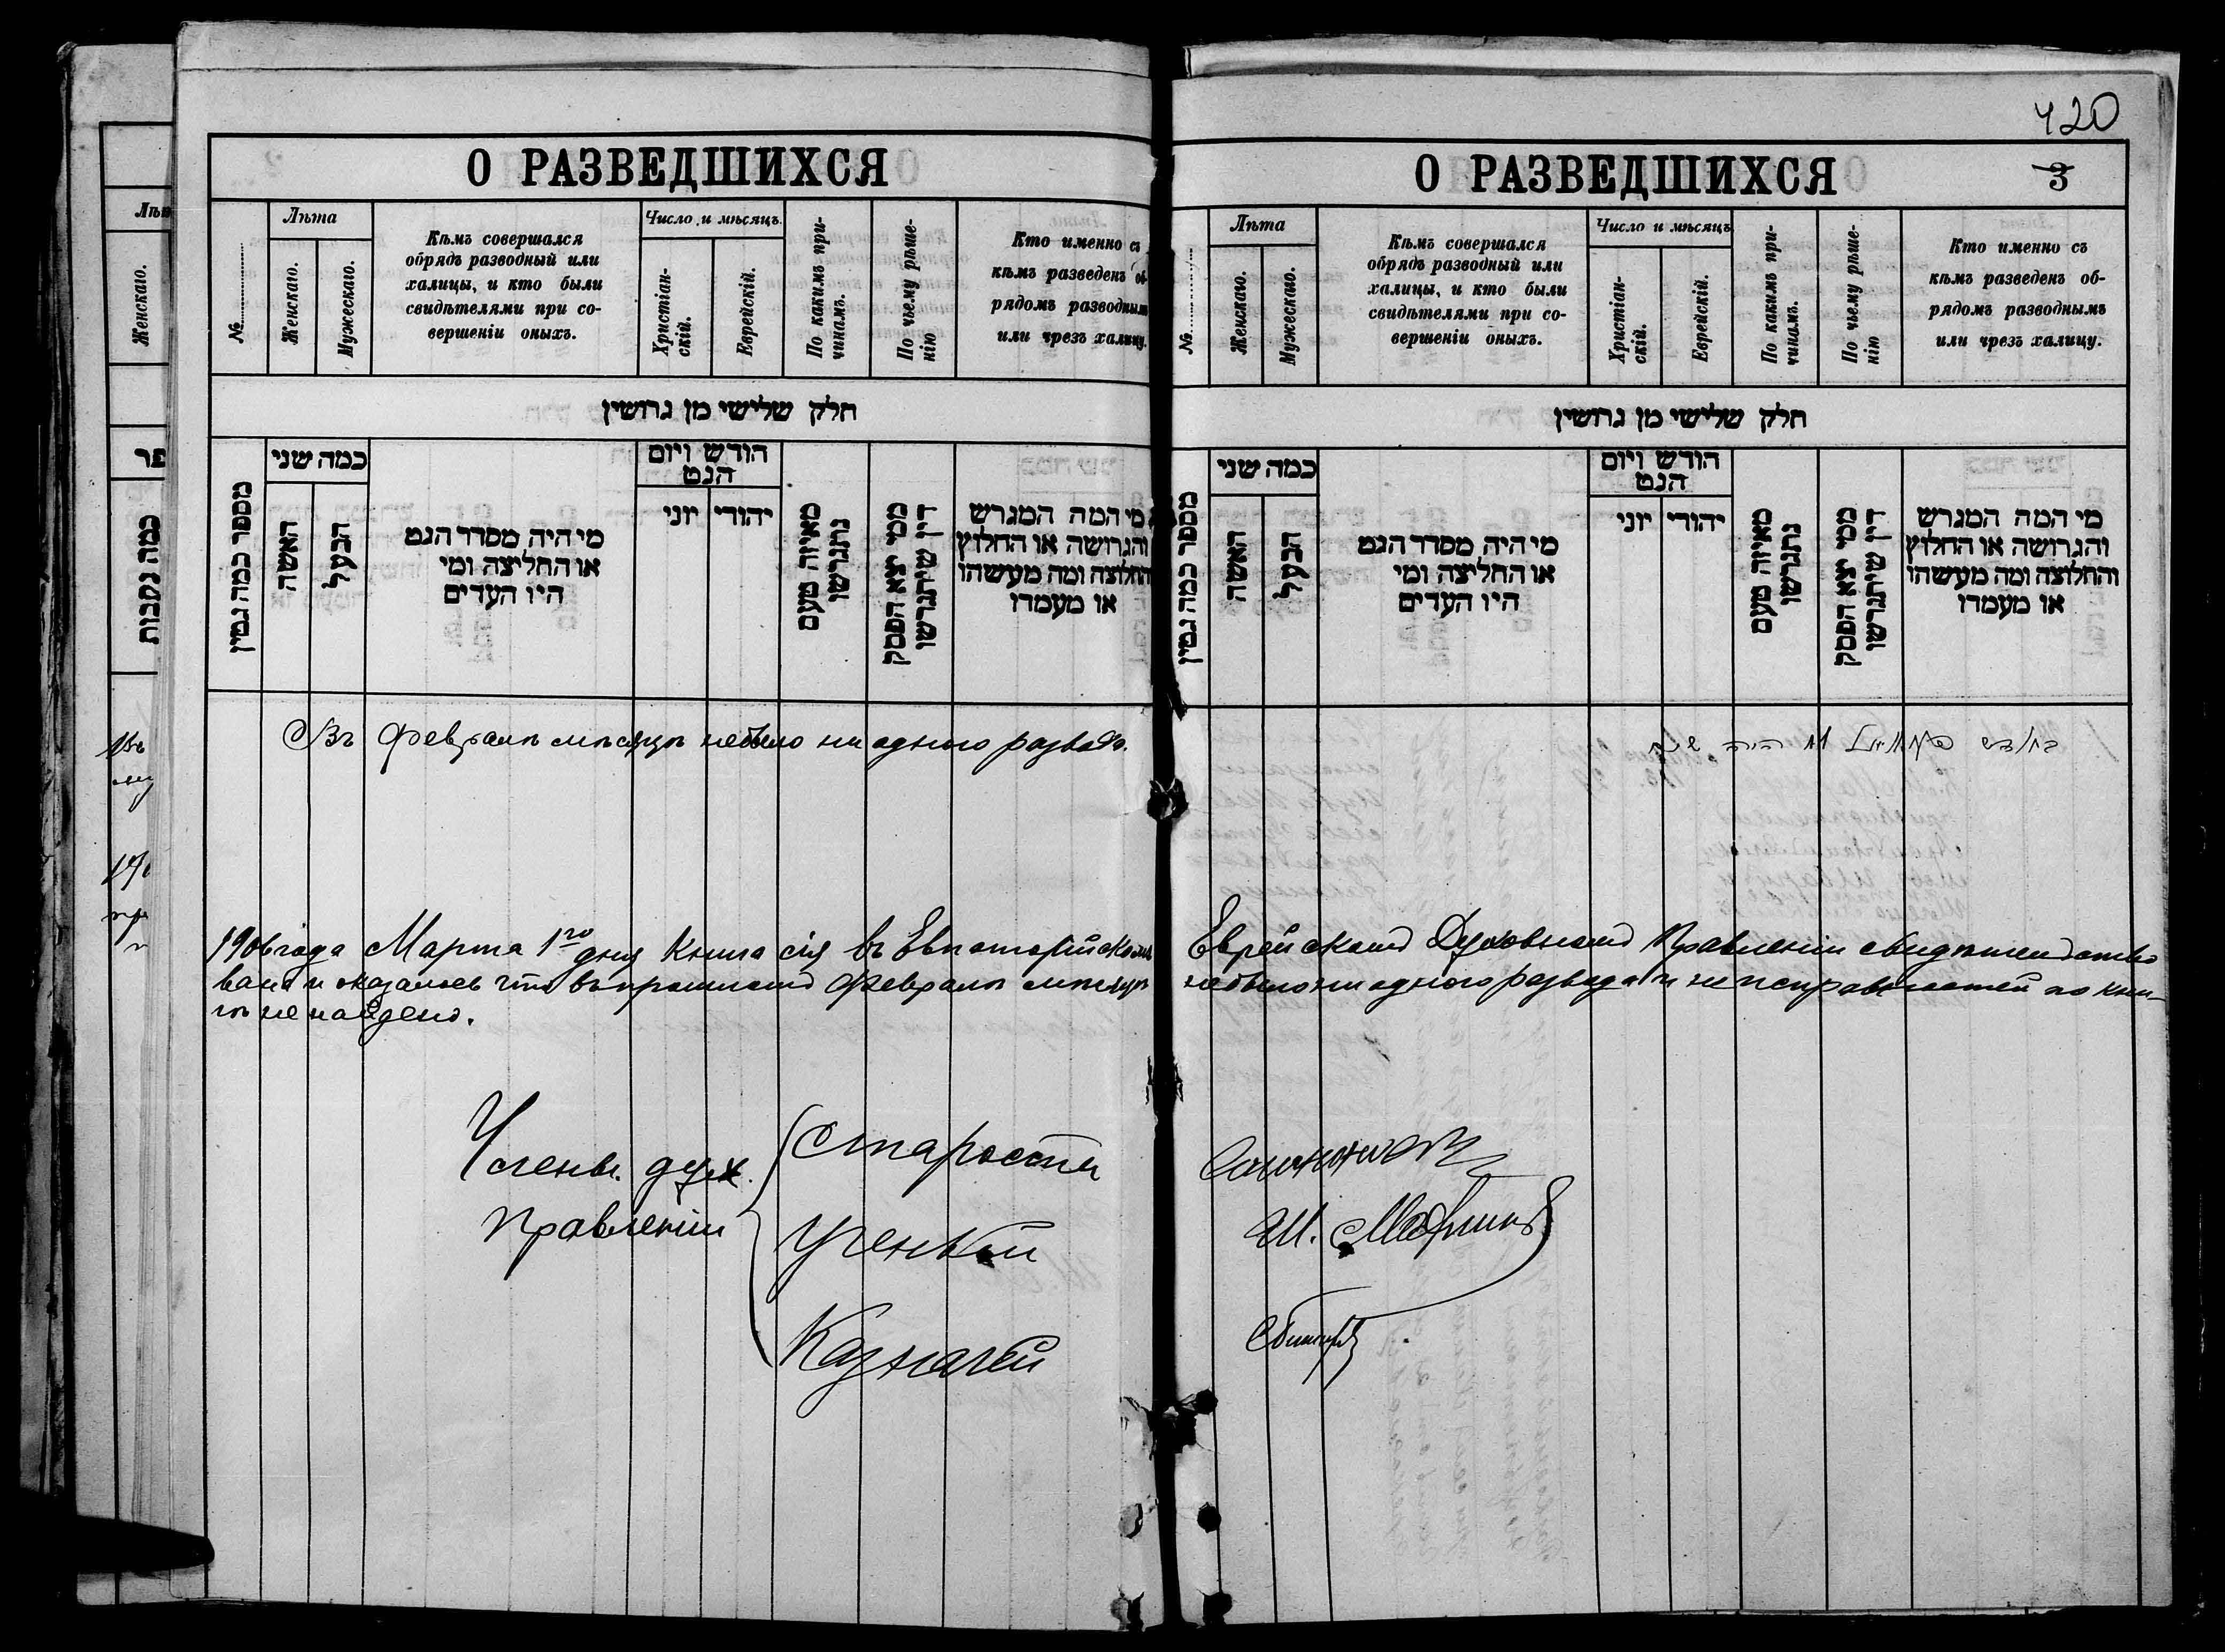 420
О РАЗВЕДШИХСЯ
№
Лѣта
Женскаго.
Мужескаго.
Кѣмъ совершался
обрядъ разводный или
халицы, и кто были
свидѣтелями при со-
вершеніи оныхъ.
Число и мѣсяцъ.
Христіан-
скій.
Еврейскій.
По какимъ при-
чинамъ.
По чьему рѣше-
нію
Кто именно съ
кѣмъ разведенъ об-
рядомъ разводным
или чрезъ халицу.
חלק שלישי מן גרושין
מספר כמה גטין
כמה שני
האשה
הבעל
מי היה מסדר הגט
או החליצה ומי
היו העדים
הודש ויום
הגט
יוני
יהודי
מאיזה טעם
נתגרשו
ממי יצא הפסק
דין שיתגרשו
מי המה המגרש
והגרושה או החלוץ
והחלוצה ומה מעשהו
או מעמדו
Въ Февралѣ мѣсяцѣ небыло ни одного развода.
О РАЗВЕДШИХСЯ
3
№
Лѣта
Женскаго.
Мужескаго.
Кѣмъ совершался
обрядъ разводный или
халицы, и кто были
свидѣтелями при со-
вершеніи оныхъ.
Число и мѣсяцъ
Христіан-
скій.
Еврейскій.
По какимъ при-
чинамъ.
По чьему рѣше-
нію
Кто именно съ
кѣмъ разведенъ об-
рядомъ разводнымъ
или чрезъ халицу.
חלק שלישי מן גרושין
מספר כמה גטין
כמה שני
האשה
הבעל
מי היה מסדר הגט
או החליצה ומי
היו העדים
הודש ויום
הגט
יוני
יהודי
מאיזה טעם
נתגרשו
ממי יצא הפסק
דין שיתגרשו
מי המה המגרש
והגרושה או החלוץ
והחלוצה ומה מעשהו
או מעמדו
בחודש לא היה
1906 года Марта 1го дня Книга сія въ Евпаторійскомъ Еврейскомъ Духовномъ Правленіи свидѣтельство
вана и оказалось что въ прошломъ Февралѣ мѣсяцѣ небыло ни одного развода и неисправностей по кни-
гѣ не найдено.
Члены дух.
Правленіи
Староста
Ученый
Казначей
Ш.
Женскаго.
כמה נקבות